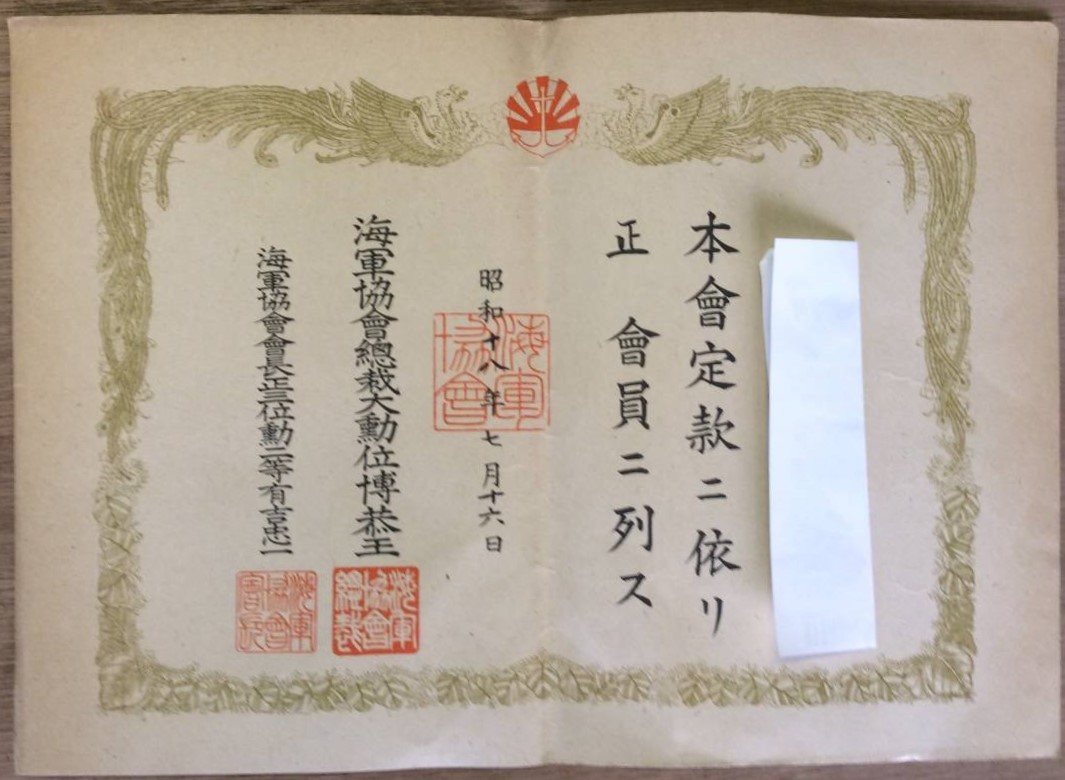 本會定款ニ依リ
正會員ニ列ス
昭和十八年七月十六日
海軍協會
海軍協會總裁大勳位博恭王
海軍協會總裁
海軍協會會長正三位勳二等有吉忠一
海軍協會會長